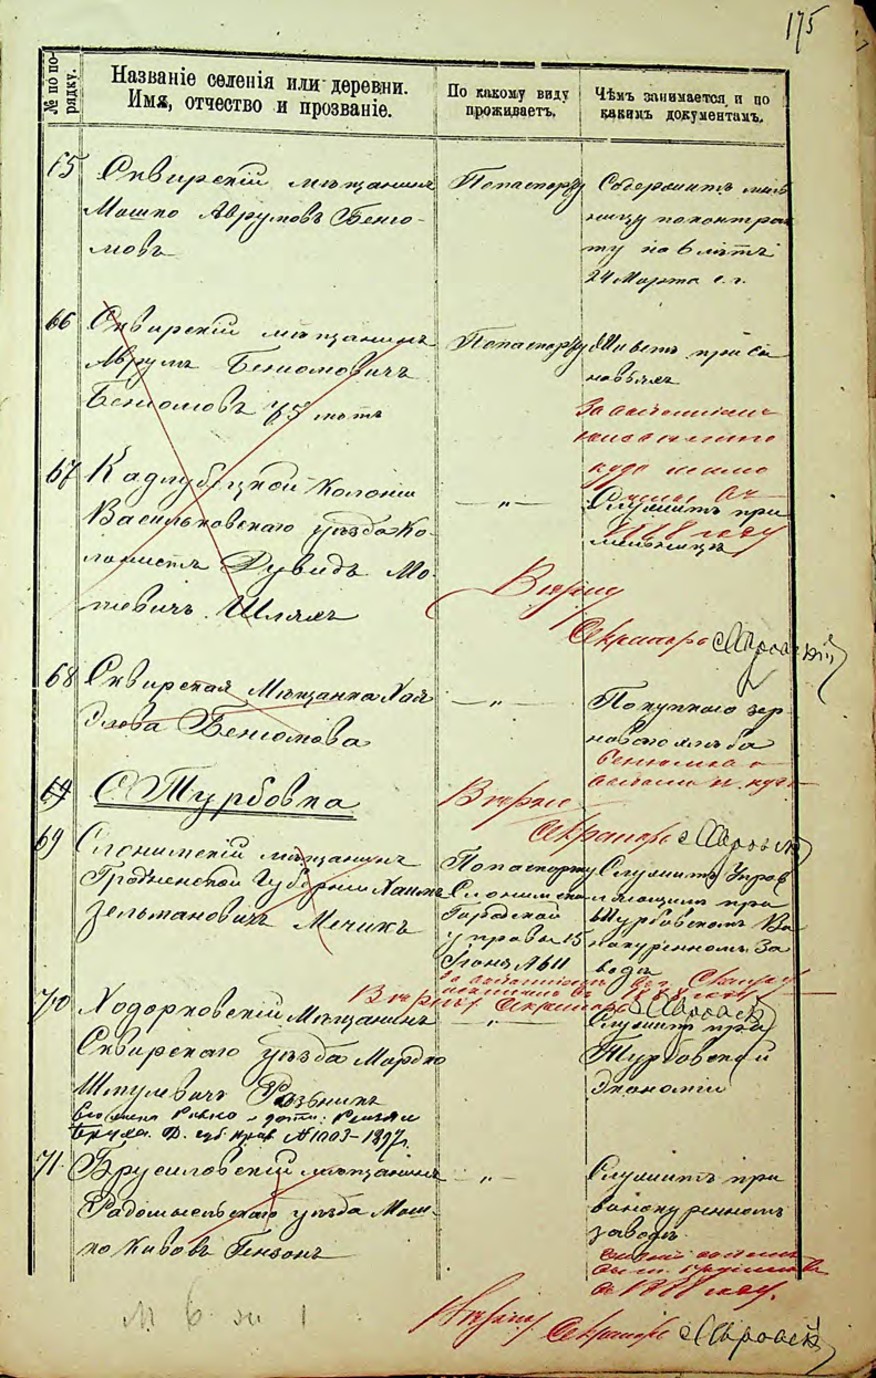 175
№ по по-
рядку.
Названіе селенія или деревни.
Имя, отчество и прозваніе.
По какому виду
проживаетъ.
Чѣмъ занимается и по
какимъ документамъ.
65
Сквирскій мѣщанинъ
Мошко Аврумовъ Бенiо-
мовъ
Попаспорту
Содержитъ мель
ницу поконтрак
ту на 6 лѣтъ
24 Марта с. г.
66
Сквирскій мѣщанинъ
Аврумъ Беніомовичъ
Беніомовъ 75 лѣтъ
Попаспорту
Живетъ при сы
новьяхъ
67
Кадлубицкой Колоніи
Васильковскаго уѣзда Ко-
лонистъ Дувидъ Мо-
тевичъ Шляхъ
— „ —
Служитъ при
мельницѣ
1888 году
Вѣрно
Секретарь
68
Сквирская Мѣщанка Хая
Элева Беніомова
— „ —
Покупкою зер
новаго хлѣба
69
С. Турбовка
Вѣрно
Секретарь
69
Слонимскій мѣщанинъ
Гродненской Губерніи Хаимъ
Зельмановичъ Мечикъ
Попаспорту
Слонимской
Городской
управы 15
Служитъ Управ
ляющимъ при
Турбовскомъ Ви
нокуренномъ За
водѣ
Вѣрно Секретарь
1888 году
70
Ходорковскій Мѣщанинъ
Сквирскаго уѣзда Мордко
Шмулевичъ Розьникъ
его жена Ривка и дѣти:
№ 1003 - 1897 г.
— „ —
Служитъ при
Турбовской
Экономіи
71.
Брусиловскій мѣщанинъ
Радомысльскаго уѣзда Мош-
ко Кивовъ Гензонъ
— „ —
Служитъ при
винокуренномъ
заводѣ
въ 1888 году.
Вѣрно Секретарь